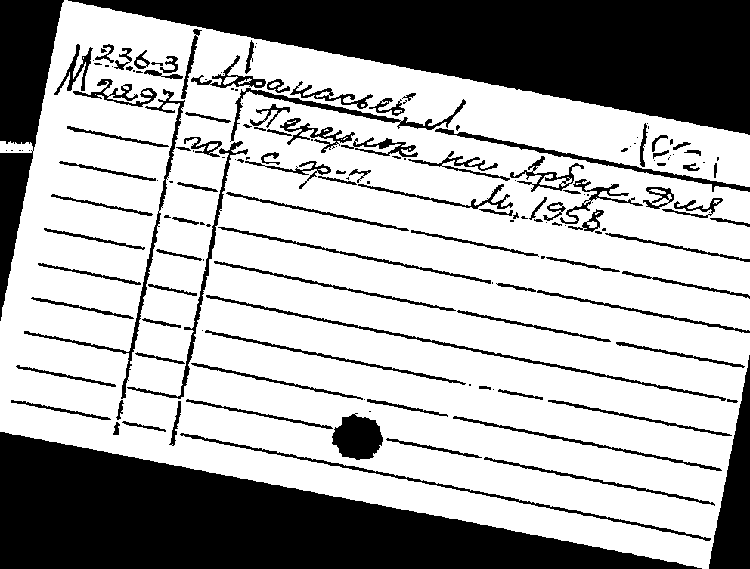 М 236-3
2297
Афанасьев, Л.
182
Переулок на Арбате. Для
гол. с ф-п. М., 1958.